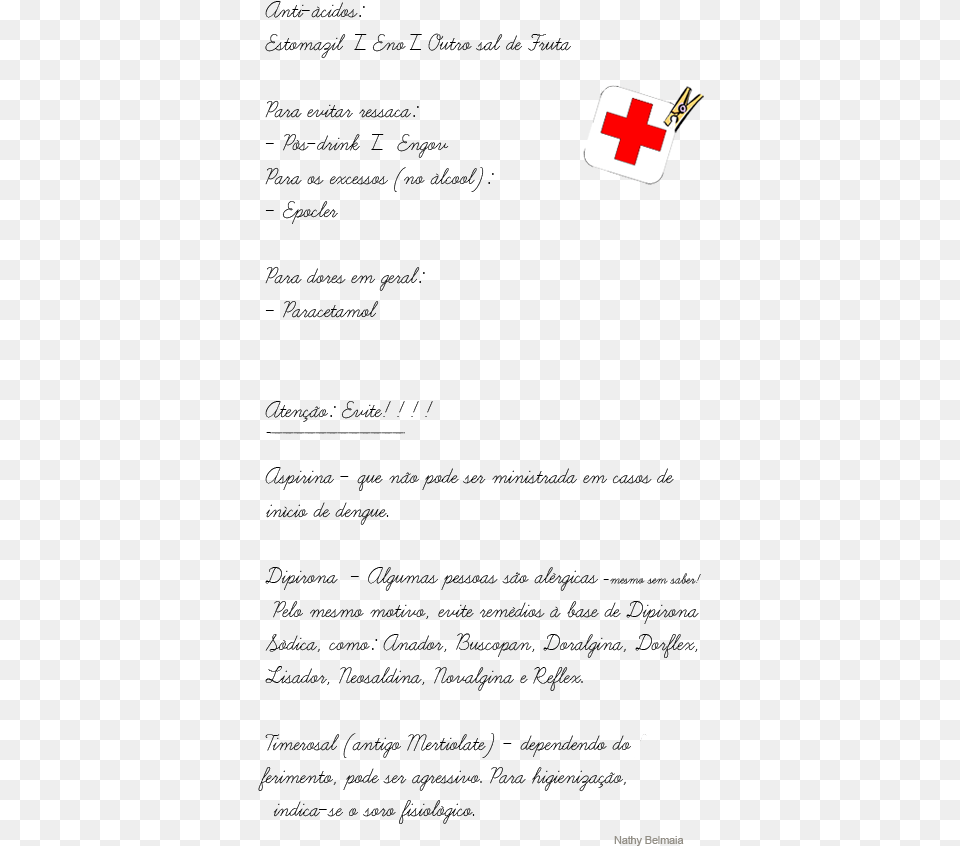 Anti-àcidos:
Estomazil I Eno I Outro sal de Fruta
Para evitar ressaca:
- Pòs-drink I Engov
Para os excessos (no àlcool):
- Epocler
Para dores em geral:
- Paracetamol
Atenção: Evite! ! ! !
Aspirina - que não pode ser ministrada em casos de
inìcio de dengue.
Dipirona - Algumas pessoas são alèrgicas -mesmo sem saber!
Pelo mesmo motivo, evite remèdios à base de Dipirona
Sòdica, como: Anador, Buscopan, Doralgina, Dorflex,
Lisador, Neosaldina, Novalgina e Reflex.
Timerosal (antigo Mertiolate) - dependendo do
ferimento, pode ser agressivo. Para higienização,
indica-se o soro fisiològico.
Nathy Belmaia